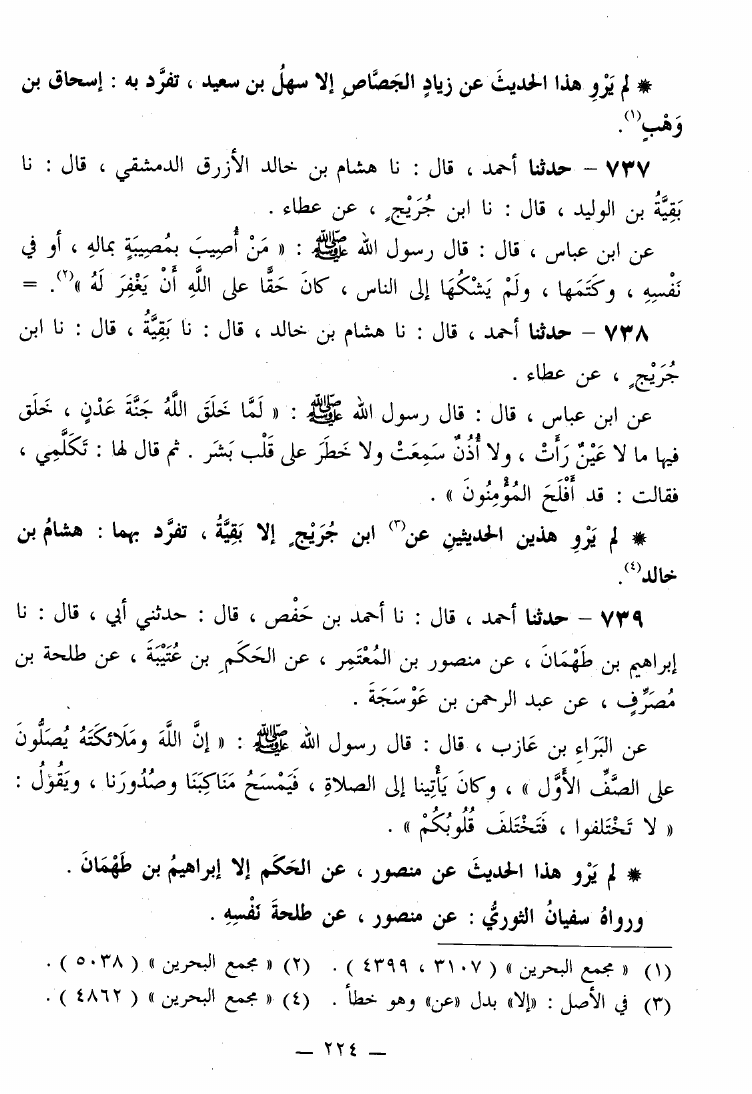 * لم يَرْوِ هذا الحديثَ عن زيادٍ الجَصَّاصِ إلا سهلُ بن سعيد ، تفرَّد به : إسحاق بن
وَهْبٍ(١).
٧٣٧ – حدثنا أحمد ، قال : نا هشام بن خالد الأزرق الدمشقي ، قال : نا
بَقِيَّةُ بن الوليد ، قال : نا ابن جُرَيْجٍ ، عن عطاء .
عن ابن عباس ، قال : قال رسول الله ﷺ : « مَنْ أُصِيبَ بمُصِيبَةٍ بمالهِ ، أو في
نَفْسِهِ ، وكَتَمَها ، ولَمْ يَشْكُهَا إلى الناس ، كانَ حَقًّا على اللَّهِ أَنْ يَغْفِرَ لَهُ »(٢). =
٧٣٨ – حدثنا أحمد ، قال : نا هشام بن خالد ، قال : نا بَقِيَّةُ ، قال : نا ابن
جُرَيْجٍ ، عن عطاء .
عن ابن عباس ، قال : قال رسول الله ﷺ : « لَمَّا خَلَقَ اللَّهُ جَنَّةَ عَدْنٍ ، خَلَق
فيها ما لا عَيْنٌ رَأَتْ ، ولا أُذُنٌ سَمِعَتْ ولا خَطَرَ على قَلْب بَشَر . ثم قال لها : تَكَلَّمِي ،
فقالت : قد أَفْلَحَ المُؤْمِنُونَ » .
* لم يَرْوِ هذين الحديثينِ عن(٣) ابن جُرَيْجٍ إلا بَقِيَّةُ ، تفرَّد بهما : هشامُ بن
خالد(٤).
٧٣٩ – حدثنا أحمد ، قال : نا أحمد بن حَفْص ، قال : حدثني أبي ، قال : نا
إبراهيم بن طَهْمَانَ ، عن منصور بن المُعْتَمِر ، عن الحَكَمِ بن عُتَيْبَةَ ، عن طلحة بن
مُصَرِّفٍ ، عن عبد الرحمن بن عَوْسَجَةَ .
عن البَرَاءِ بن عَازب ، قال : قال رسول الله ﷺ : « إنَّ اللَّهَ ومَلَائكَتَهُ يُصَلُّونَ
على الصَّفِّ الأَوَّل » ، وكانَ يَأْتِينا إلى الصلاةِ ، فَيَمْسَحُ مَنَاكِبَنَا وصُدُورَنا ، ويَقُوْلُ :
« لا تَخْتَلفوا ، فَتَخْتَلفَ قُلُوبُكُمْ » .
* لم يَرْو هذا الحديثَ عن منصور ، عن الحَكَم إلا إبراهيمُ بن طَهْمَانَ .
ورواهُ سفيانُ الثوريُّ : عن منصور ، عن طلحةَ نَفْسِهِ .
(١) « مجمع البحرين » ( ٣١٠٧ ، ٤٣٩٩ ) . (٢) « مجمع البحرين » ( ٥٠٣٨ ) .
(٣) في الأصل : «إلا» بدل «عن» وهو خطأ . (٤) « مجمع البحرين » ( ٤٨٦٢ ) .
– ٢٢٤ –